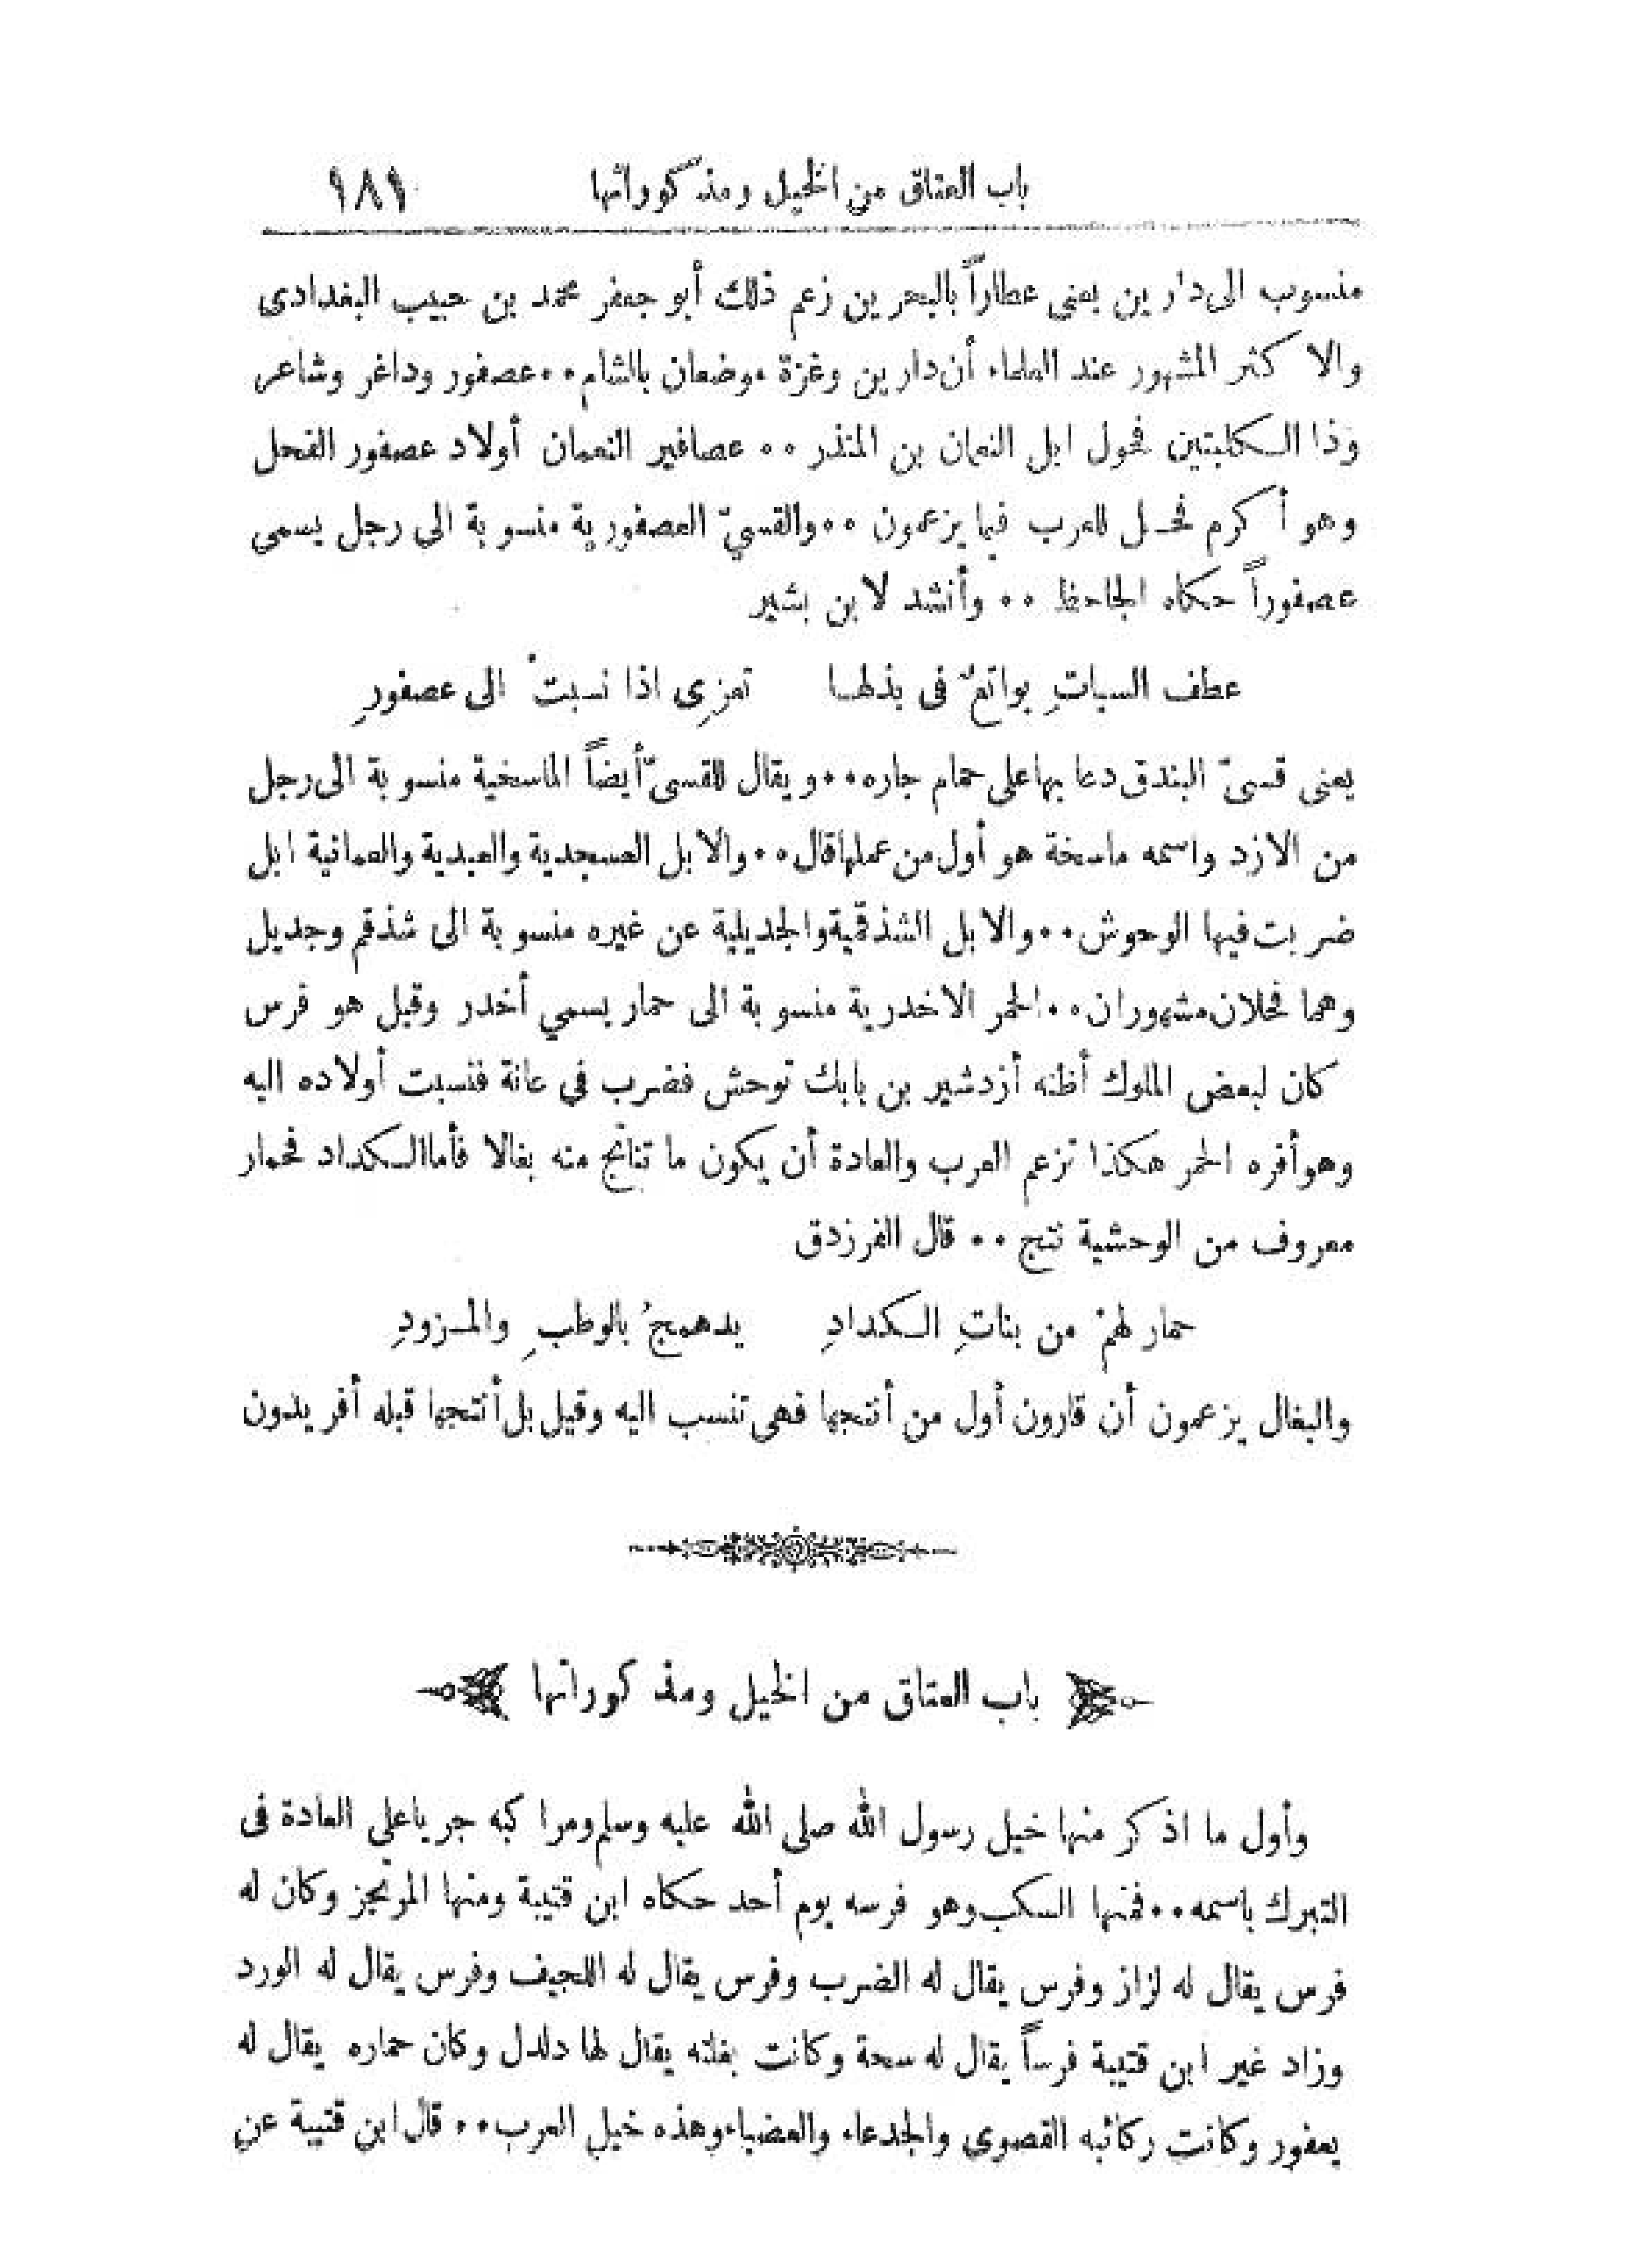 باب العتاق من الخيل ومذكوراتها ١٨١
منسوب الى دارين يعنى عطاراً بالبحرين زعم ذلك أبو جعفر محمد بن حبيب البغدادى
والاكثر المشهور عند العلماء أن دارين وغزة موضعان بالشام٠٠عصفور وداغر وشاعر
وذا الكلبتين فحول ابل النعمان بن المنذر ٠٠ عصافير النعمان أولاد عصفور الفحل
وهو أكرم فحل للعرب فيما يزعمون ٠٠والقسيّ العصفورية منسوبة الى رجل يسمى
عصفوراً حكاه الجاحظ ٠٠ وأنشد لابن بشير
عطف السياتِ بواتعٌ فى بذلها تعزِى اذا نسبتْ الى عصفورِ
يعنى قسىّ البندق دعا بها على حمام جاره٠٠ويقال للقسىّ أيضاً الماسخية منسوبة الى رجل
من الازد واسمه ماسخة هو أول من عملها قال٠٠والابل العسجدية والعيدية والعمانية ابل
ضربت فيها الوحوش٠٠والابل الشذقمية والجديلية عن غيره منسوبة الى شذقم وجديل
وهما فحلان مشهوران٠٠الحمر الاخدرية منسوبة الى حمار يسمي أخدر وقيل هو فرس
كان لبعض الملوك أظنه أزدشير بن بابك توحش فضرب في عانة فنسبت أولاده اليه
وهو أفره الحمر هكذا تزعم العرب والعادة أن يكون ما تناتج منه بغالا فأما الكداد فحمار
معروف من الوحشية نتج ٠٠ قال الفرزدق
حمار لهمْ من بناتِ الكدادِ يدهمجُ بالوطبِ والمزودِ
والبغال يزعمون أن قارون أول من أنتجها فهى تنسب اليه وقيل بل أنتجها قبله أفريدون
باب العتاق من الخيل ومذكوراتها
وأول ما اذكر منها خيل رسول الله صلى الله عليه وسلم ومراكبه جريا على العادة فى
التبرك باسمه٠٠فمنها السكب وهو فرسه يوم أحد حكاه ابن قتيبة ومنها المرتجز وكان له
فرس يقال له لزاز وفرس يقال له الضرب وفرس يقال له اللحيف وفرس يقال له الورد
وزاد غير ابن قتيبة فرساً يقال له سبحة وكانت بغلته يقال لها دلدل وكان حماره يقال له
يعفور وكانت ركائبه القصوى والجدعاء والعضباء وهذه خيل العرب٠٠ قال ابن قتيبة عن